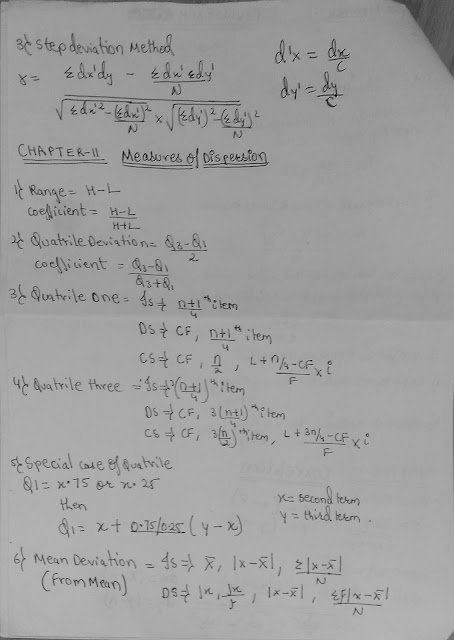 3} Step deviation Method
r = Σdx'dy - Σdx' Σdy' / N
√Σdx'² - (Σdx')² / N × √(Σdy')² - (Σdy')² / N
d'x = dx / C
dy' = dy / C
CHAPTER-11 Measures of Dispersion
1} Range = H-L
coefficient = H-L / H+L
2} Quatrile Deviation = Q3-Q1 / 2
coefficient = Q3-Q1 / Q3+Q1
3} Quatrile One = IS → n+1 / 4 th item
DS → CF, n+1 / 4 th item
CS → CF, n / 2, L + n/4 - CF / F × i
4} Quatrile three = (n+1 / 4) th item
DS → CF, 3(n+1) / 4 th item
CS → CF, 3(n / 2) th item, L + 3n/4 - CF / F × i
5} Special case of Quatrile
Q1 = x.75 or x.25
then
Q1 = x + 0.75/0.25 (y-x)
x = second term
y = third term.
6} Mean Deviation = IS → x̄, |x-x̄|, Σ|x-x̄| / N
(From Mean)
DS → fx, |x-x̄|, Σf|x-x̄| / N